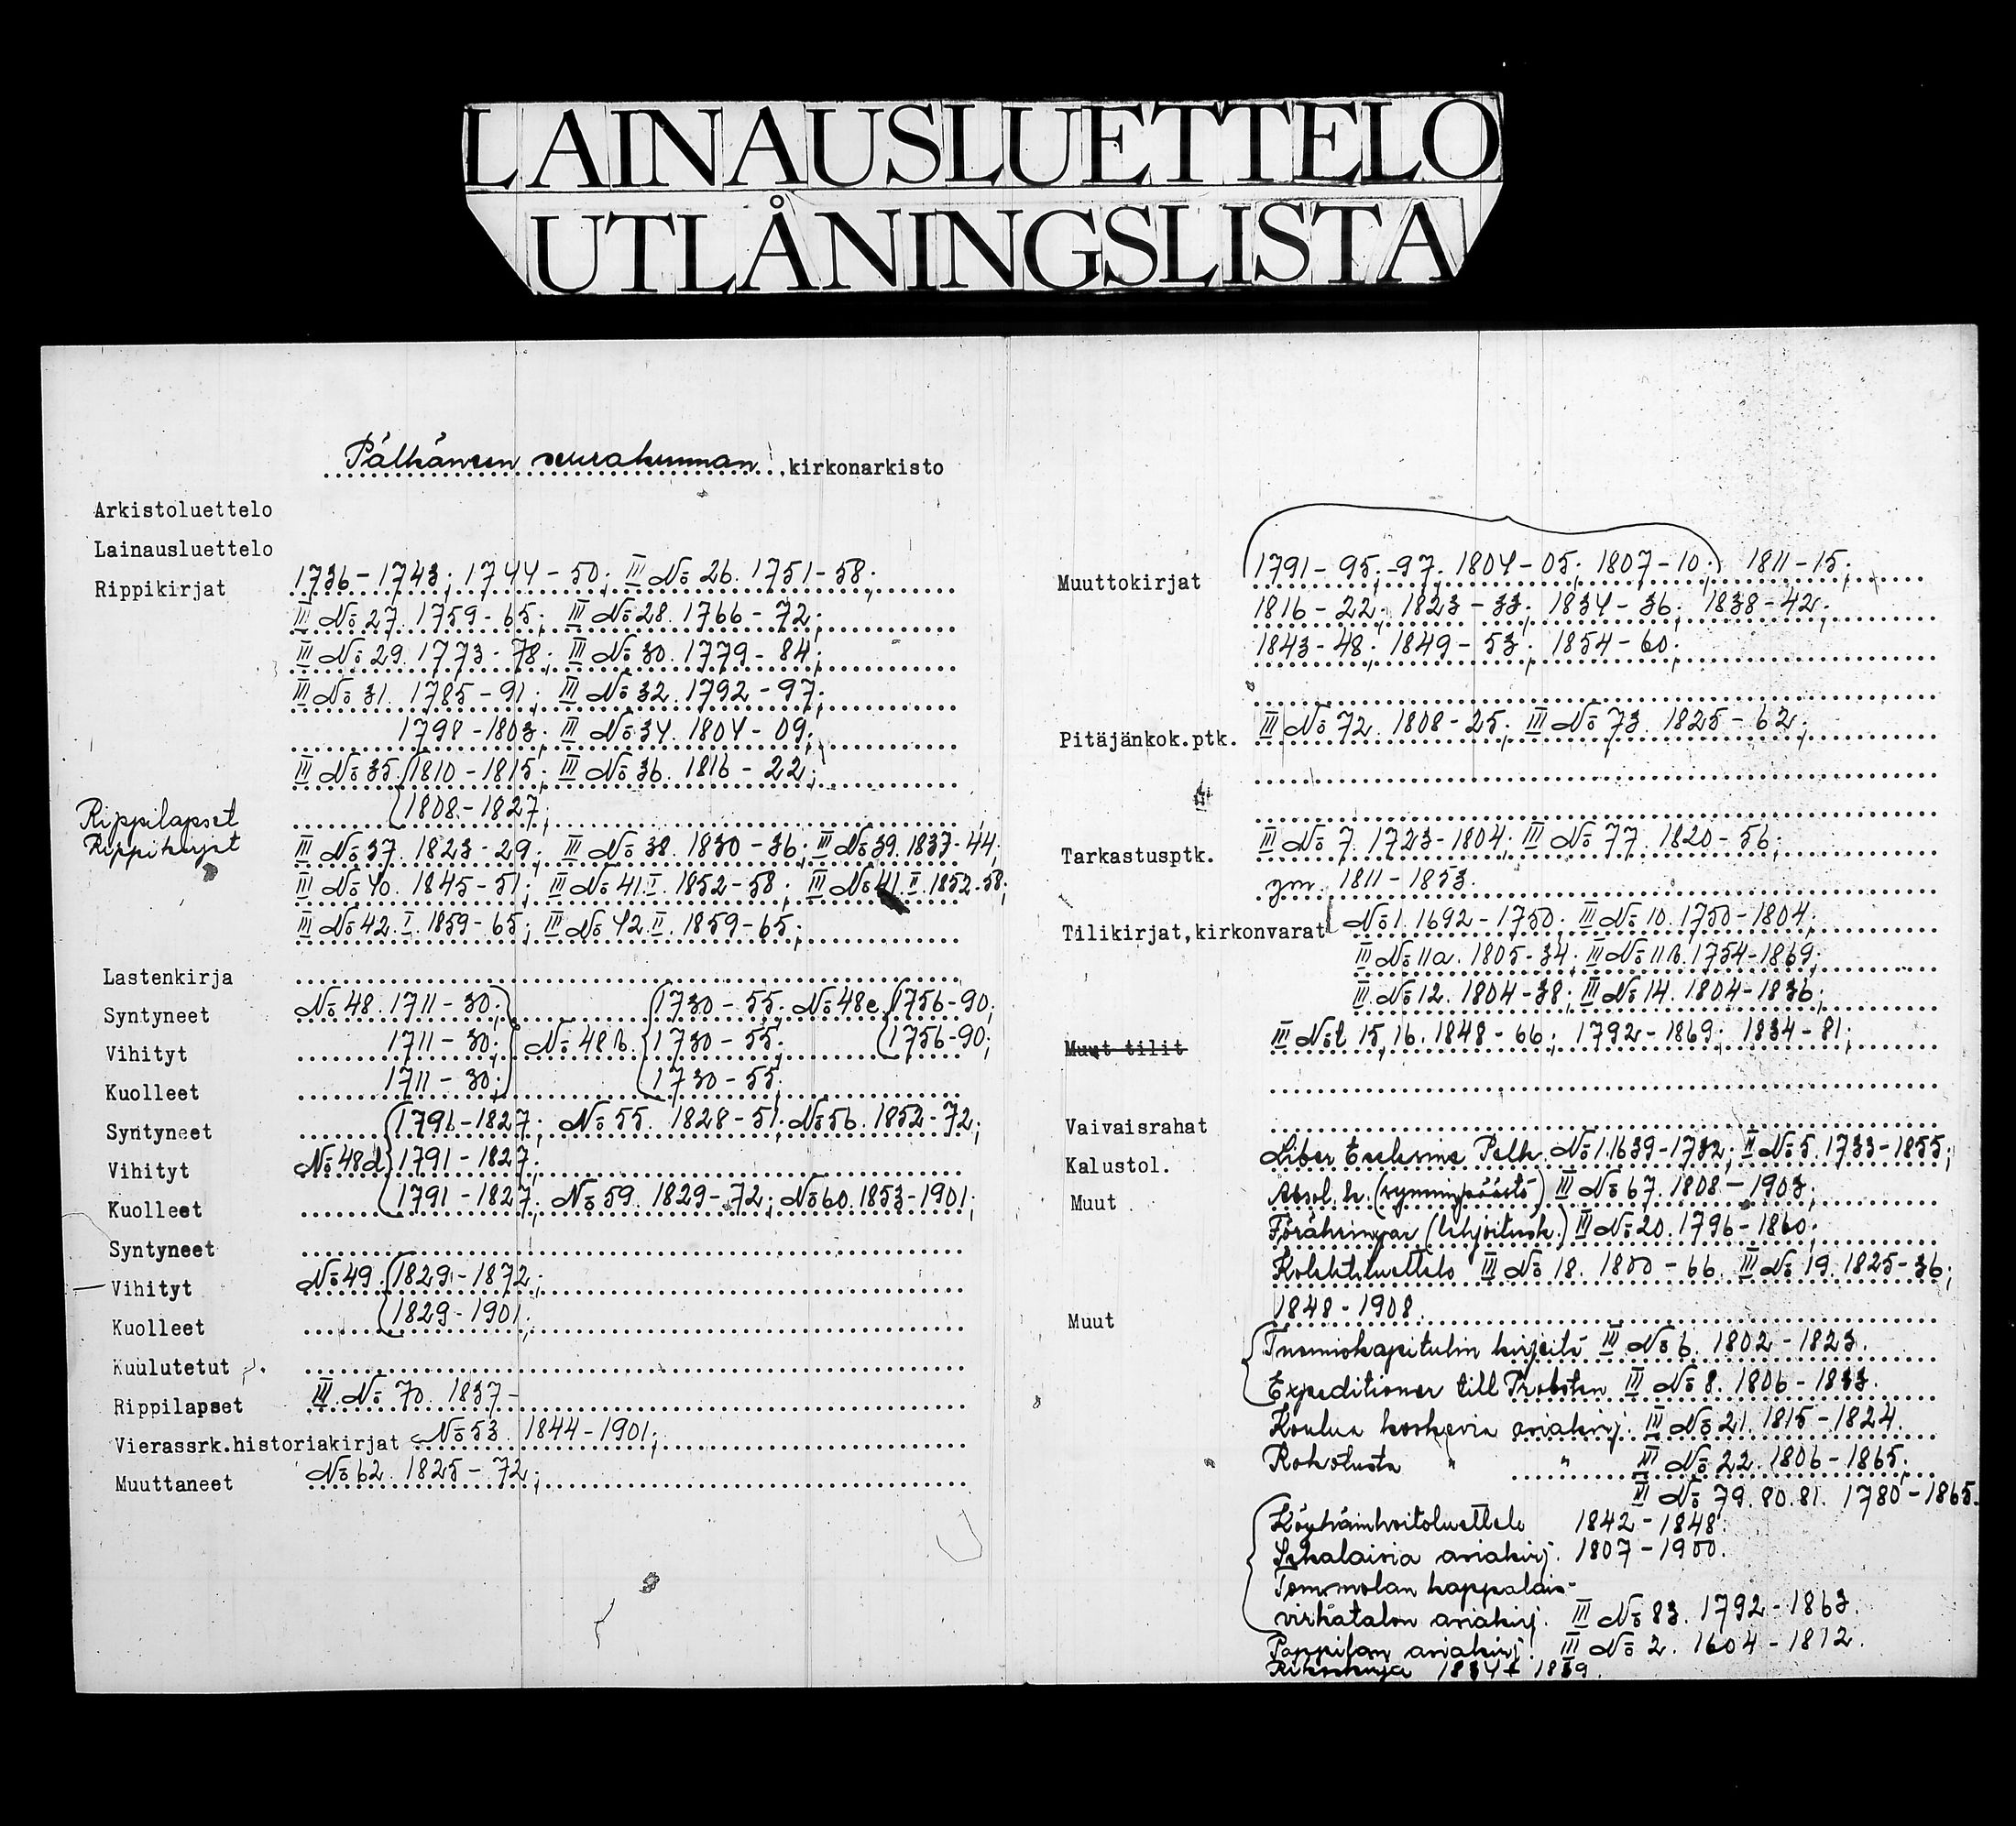 LAINAUSLUETTELO
UTLÅNINGSLISTA
Pälkäneen seurakunnan kirkonarkisto
Arkistoluettelo
Lainausluettelo
Rippikirjat 1736-1743; 1744-50; III No 26. 1751-58;
III No 27. 1759-65; III No 28. 1766-72;
III No 29. 1773-78; III No 30. 1779-84;
III No 31. 1785-91; III No 32. 1792-97;
1798-1803; III No 34. 1804-09;
III No 35. 1810-1815; III No 36. 1816-22;
Rippilapset 1808-1827;
Rippikirjat III No 37. 1823-29; III No 38. 1830-36; III No 39. 1837-44;
III No 40. 1845-51; III No 41.I. 1852-58; III No 41.II. 1852-58;
III No 42.I. 1859-65; III No 42.II. 1859-65;
Lastenkirja
Syntyneet No 48. 1711-30; 1730-55; No 48c. 1756-90;
Vihityt 1711-30; No 48b. 1730-55; 1756-90;
Kuolleet 1711-30; 1730-55;
Syntyneet 1791-1827; No 55. 1828-51; No 56. 1852-72;
Vihityt No 48d 1791-1827;
Kuolleet 1791-1827; No 59. 1829-72; No 60. 1853-1901;
Syntyneet
Vihityt No 49. 1829-1872;
Kuolleet 1829-1901;
Kuulutetut
Rippilapset III No 70. 1837-
Vierassrk.historiakirjat No 53. 1844-1901;
Muuttaneet No 62. 1825-72;
Muuttokirjat 1791-95; -97. 1804-05; 1807-10; 1811-15;
1816-22; 1823-33; 1834-36; 1838-42;
1843-48; 1849-53; 1854-60;
Pitäjänkok.ptk. III No 72. 1808-25; III No 73. 1825-62;
Tarkastusptk. III No 7. 1723-1804; III No 77. 1820-56;
ym. 1811-1853.
Tilikirjat,kirkonvarat No 1. 1692-1750; III No 10. 1750-1804;
III No 11a. 1805-34; III No 11b. 1754-1869;
III No 12. 1804-38; III No 14. 1804-1836;
Muut tilit III No 15, 16. 1848-66; 1792-1869; 1834-81;
Vaivaisrahat
Kalustol. Liber Pelk. No 1. 1639-1732; II No 5. 1733-1855;
Muut Absol. k. (synninpäästö) III No 67. 1808-1903;
Föräringar (lahjoitusk.) III No 20. 1796-1860;
Kolehtiluettelo III No 18. 1800-66. III No 19. 1825-36;
Muut 1848-1908.
Tuomiokapitulin kirjeitä III No 6. 1802-1823.
Expeditioner till Probsten III No 8. 1806-1833.
Koulua koskevia asiakirj. III No 21. 1815-1824.
Rokotusta " " III No 22. 1806-1865;
III No 79. 80. 81. 1780-1865.
Köyhäinhoitoluettelo 1842-1848.
Sekalaisia asiakirj. 1807-1900.
Tommolan kappalais-
virkatalon asiakirj. III No 83. 1792-1863.
Pappilan asiakirj. III No 2. 1604-1812.
Rikoskirja 1834 1839.